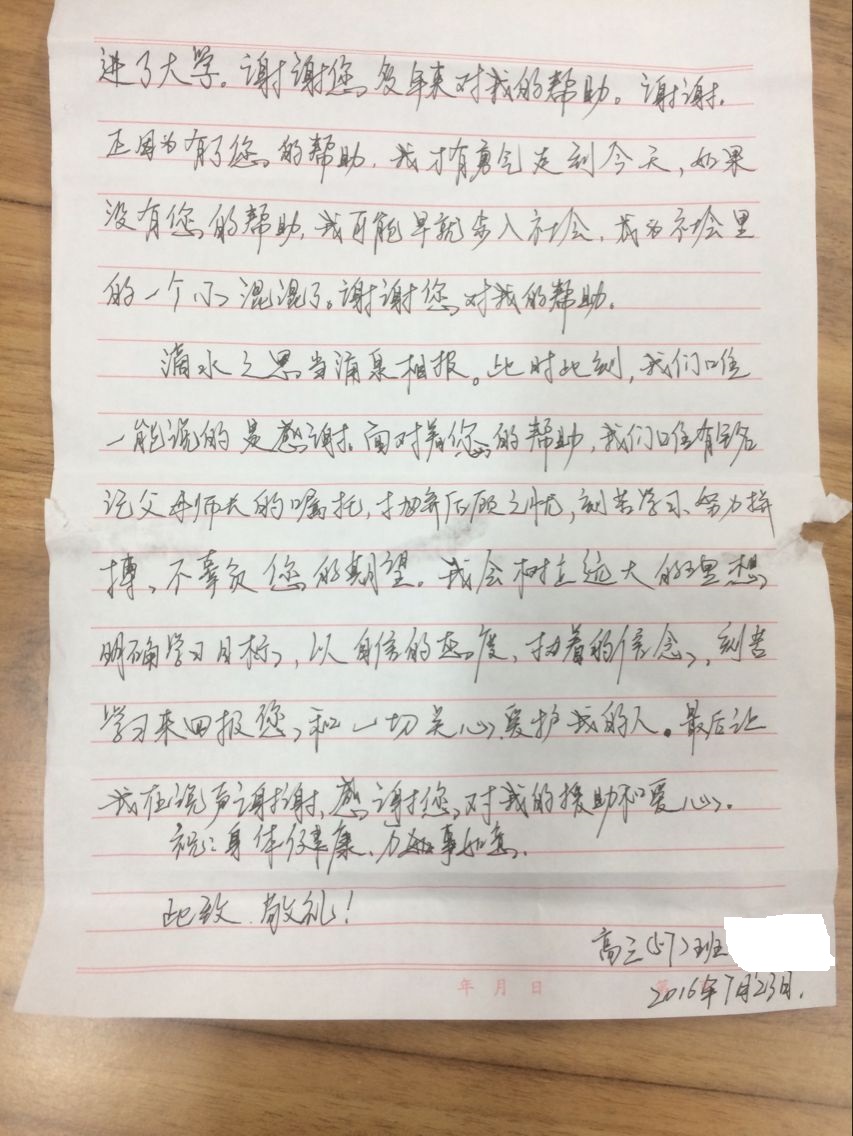 进了大学。谢谢您多年来对我的帮助。谢谢。
正因为有了您的帮助,我才有勇气走到今天,如果
没有您的帮助,我可能早就步入社会,成为社会里
的一个小混混了。谢谢您对我的帮助。
滴水之恩当涌泉相报。此时此刻,我们唯
一能说的是感谢。面对着您的帮助,我们唯有铭
记父母师长的嘱托,抛弃后顾之忧,刻苦学习、努力拼
搏、不辜负您的期望。我会树立远大的理想
明确学习目标,以自信的态度,执着的信念,刻苦
学习来回报您和一切关心爱护我的人。最后让
我在说声谢谢,感谢您对我的援助和爱心。
祝:身体健康、万事如意。
此致、敬礼!
高三(57)班
年 月 日
2016年7月23日.